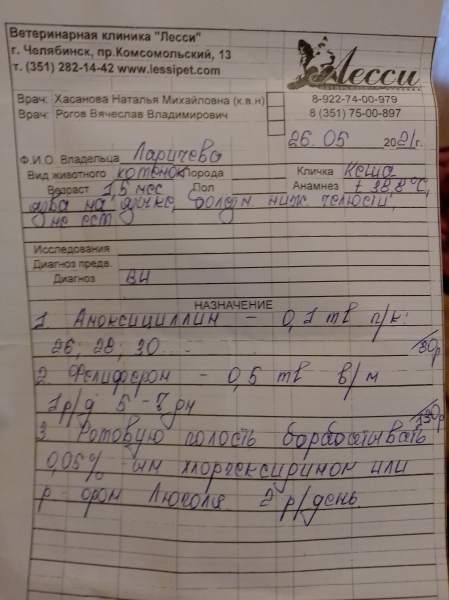 Ветеринарная клиника "Лесси"
г. Челябинск, пр.Комсомольский, 13
т. (351) 282-14-42 www.lessipet.com
Лесси
Врач: Хасанова Наталья Михайловна (к.в.н)
Врач: Рогов Вячеслав Владимирович
8-922-74-00-979
8 (351) 75-00-897
26.05 2021г.
Ф.И.О. Владельца Ларичева
Вид животного котенок Порода Кличка Кеша
Возраст 1,5 мес Пол Анамнез t 38.8°C,
язва на дужке, болезн. ниж. челюсти,
не ест
Исследования
Диагноз предв.
Диагноз ВИ
НАЗНАЧЕНИЕ
1. Амоксициллин - 0,1 ml п/к.
26; 28; 30
2. Фелиферон - 0,5 ml в/м
1 р/д 5-7 дн
3. Ротовую полость
0,05% -ым хлоргексидином или
р-ором Люголя 2 р/день.